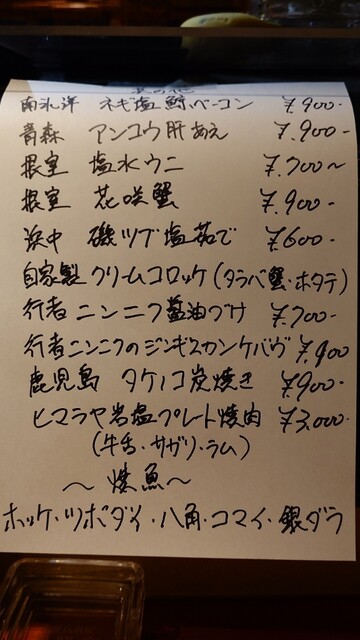 南氷洋 ネギ塩鯨ベーコン ¥900-
青森 アンコウ肝あえ ¥900-
根室 塩水ウニ ¥700~
根室 花咲蟹 ¥900-
浜中 磯ツブ塩茹で ¥600-
自家製クリームコロッケ(タラバ蟹・ホタテ)
行者ニンニク醤油づけ ¥700-
行者ニンニクのジンギスカンケバヴ ¥900
鹿児島 タケノコ炭焼き ¥900-
ヒマラヤ岩塩プレート焼肉 ¥3,000-
(牛舌・サガリ・ラム)
~焼魚~
ホッケ・ツボダイ・八角・コマイ・銀ダラ